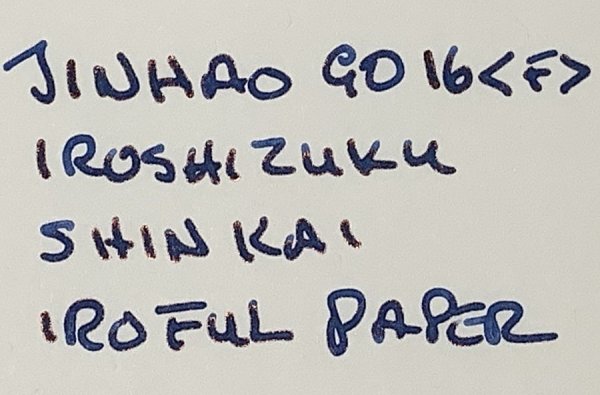 JINHAO 9016<F>
IROSHIZUKU
SHINKAI
IROFUL PAPER